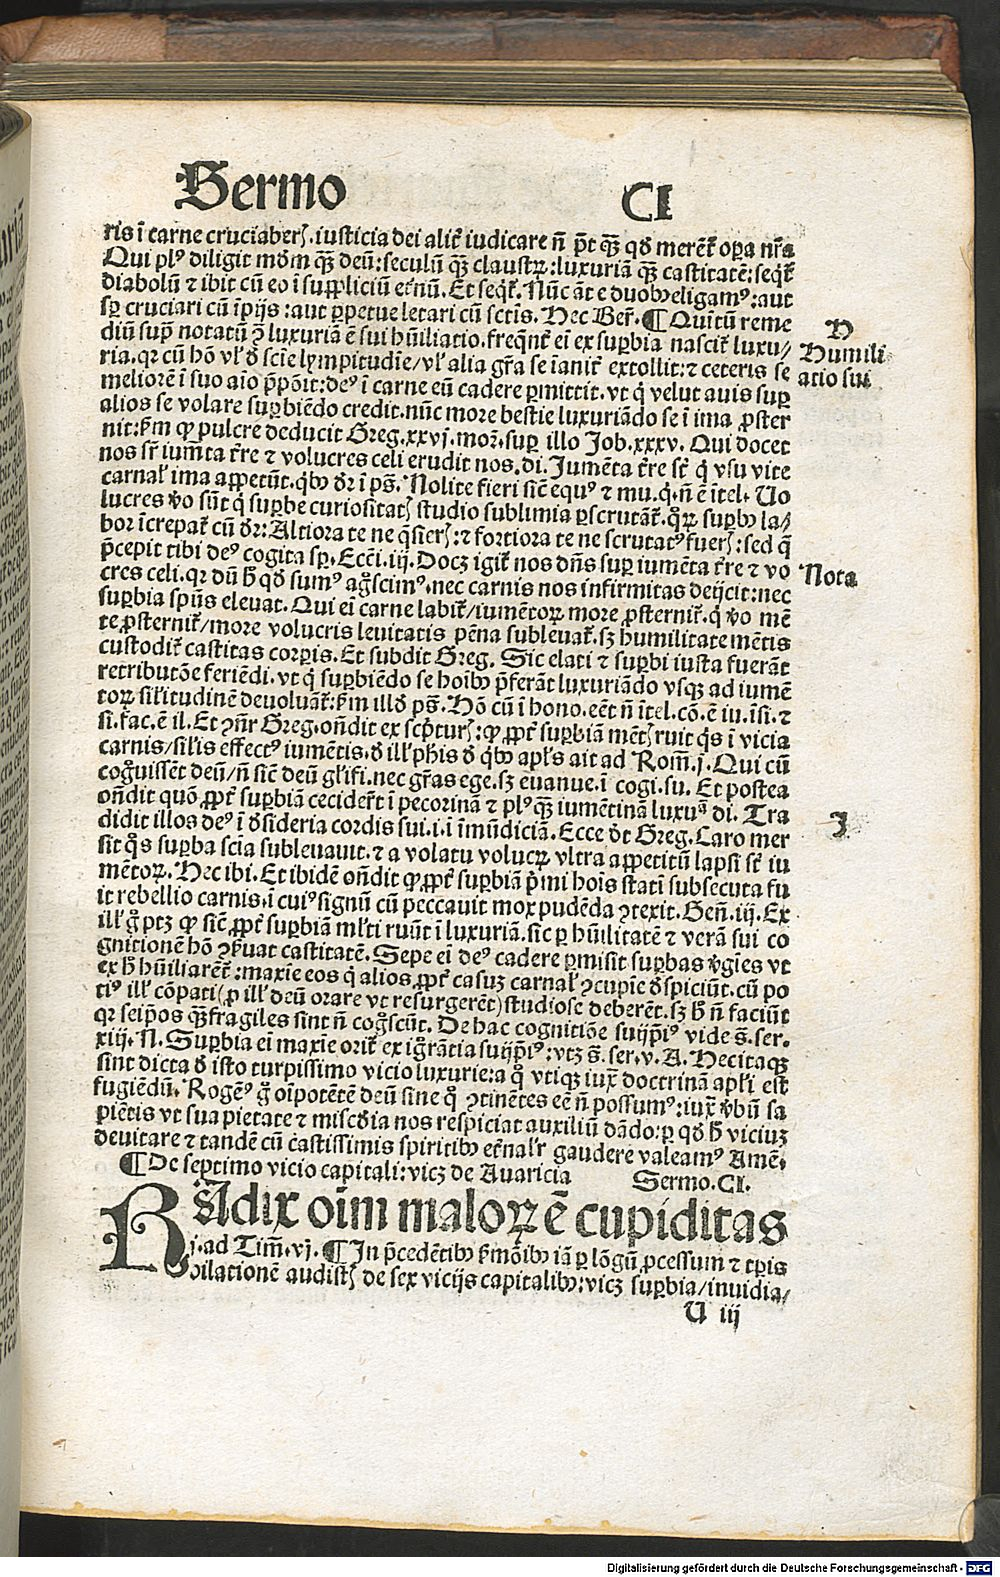 Sermo CI
ris ī carne cruciaberꝭ. iusticia dei alit̄ iudicare n̄ pōt qꝫ qd̄ merēt oꝑa nr̄a
Qui plꝰ diligit mūdm qꝫ deū: seculū qꝫ claustꝝ: luxuriā qꝫ castitatē: seqt̄
diabolū ⁊ ibit cū eo ī suppliciū et̄nū. Et seqt̄. Nūc āt e duobꝰ eligamꝰ: aut
sꝑ cruciari cū īpijs: aut ꝑpetue letari cū sctīs. Hec Ber̄. ¶ Quītū reme
diū suꝑ notatū ꝯ̄ luxuriā ē sui hūiliatio. freqn̄t ei ex suꝑbia nascit̄ luxu/
ria. qꝛ cū hō vl̓ d̄ scīe lympitudīe/ vl̓ alia gr̄a se īanit̄ extollit: ⁊ ceteris se
meliorē ī suo aīo p̄pōit: deꝰ ī carne eū cadere ꝑmittit. vt q̇ velut auis suꝑ
alios se volare suꝑbiēdo credit. nūc more bestie luxuriādo se ī ima ꝓster
nit: ẜm qꝙ pulcre deducit Greg. xxvj. mor̄. suꝑ illo Job. xxxv. Qui docet
nos sr̄ iumēta tr̄re ⁊ volucres celi erudit nos. di. Jumēta tr̄re st̄ q̇ vsu vite
carnal̓ ima appetūt. qbꝰ dr̄ ī pṡ. Nolite fieri sic̄ equꝰ ⁊ mu. q̇. n̄ ē ītel. Uo
lucres ꝟo sūt q̇ suꝑbe curiositatꝭ studio sublimia ꝑscrutāt̄. qꝝ suꝑbꝰ la/
bor īcrepat̄ cū dr̄: Altiora te ne q̄sierꝭ: ⁊ fortiora te ne scrutatꝰ fuerꝭ: sed q̄
p̄cepit tibi deꝰ cogita sꝑ. Eccī. iij. Docꝫ igit̄ nos dn̄s suꝑ iumēta tr̄re ⁊ vo
cres celi. qꝛ dū h̄ qd̄ sumꝰ agꝯscimꝰ. nec carnis nos infirmitas deijcit: nec
suꝑbia spūs eleuat. Qui ei carne labit̄/ iumētoꝝ more ꝓsternit̄. q̇ ꝟo mē
te ꝓsternit̄/ more volucris leuitatis pēna subleuat̄. sꝫ humilitate mētis
custodit̄ castitas corꝑis. Et subdit Greg. Sic elati ⁊ suꝑbi iusta fuerāt
retributōe feriēdi. vt q̇ suꝑbiēdo se hoibꝰ p̄ferāt luxuriādo vsqꝫ ad iumē
toꝝ sil̓itudinē deuoluāt̄: ẜm illd̄ pṡ. Hō cū ī hono. eēt n̄ ītel. cō. ē iu. īsi. ⁊
si. fac. ē il. Et ꝯn̄r Greg. on̄dit ex scp̄turꝭ: ꝙ ꝓpt̄ suꝑbiā mētꝭ ruit q̇s ī vicia
carnis/ sil̓is effectꝰ iumētis. d̄ ill̓ phis d̄ qbꝰ apl̓s ait ad Rom̄. j. Qui cū
cogꝯuissēt deū/ n̄ sic̄ deū gl̓ifi. nec gr̄as ege. sꝫ euanue. ī cogi. su. Et postea
on̄dit quō ꝓpt̄ suꝑbiā ceciderūt ī pecorinā ⁊ plꝰ qꝫ iumētinā luxuᵃ di. Tra
didit illos deꝰ ī d̄sideria cordis sui. i. ī īmūdiciā. Ecce d̄t Greg. Caro mer
sit qꝯs suꝑba scīa subleuauit. ⁊ a volatu volucꝝ vltra appetitū lapsi st̄ iu
mētoꝝ. Hec ibi. Et ibidē on̄dit ꝙ ꝓpt̄ suꝑbiā p̄mi hoīs statī subsecuta fu
it rebellio carnis. ī cuiꝰ signū cū peccauit mox pudēda ꝯtexit. Gen̄. iij. Ex
ill̓ gꝯ ptꝫ ꝙ sic̄ ꝓpt̄ suꝑbiā ml̓ti ruūt ī luxuriā. sic ꝑ hūilitatē ⁊ verā sui co
gnitionē hō ꝯẜuat castitatē. Sepe ei deꝰ cadere ꝑmisit suꝑbas ꝟgīes vt
ex h̄ hūiliarent̄: maxīe eos q̇ alios ꝓpt̄ casuꝫ carnal̓ ꝯcupīe d̄spiciūt. cū po
tiꝰ ill̓ cōpati (ꝓ ill̓ deū orare vt resurgerēt) studiose deberēt. sꝫ h̄ n̄ faciūt
qꝛ seip̄os qꝫ fragiles sint n̄ cogꝯscūt. De hac cognitiōe suijp̄iꝰ vide s̄. ser.
xiij. N. Suꝑbia ei maxīe orit̄ ex igꝯrātia suijp̄iꝰ: vtꝫ s̄. ser. v. A. Hec itaqꝫ
sint dicta d̄ isto turpissimo vicio luxurie: a qꝯ vtiqꝫ iuxͣ doctrinā apl̓i est
fugiēdū. Rogemꝰ gꝯ oīpotētē deū sine qꝯ ꝯtinētes eē n̄ possumꝰ: iuxͣ ꝟbū sa
piētis vt sua pietate ⁊ misc̄dia nos respiciat auxiliū dādo: ꝑ qd̄ h̄ viciuꝫ
deuitare ⁊ tandē cū castissimis spiritibꝰ et̄nal̓r gaudere valeamꝰ Amē.
¶ De septimo vicio capitali: vicꝫ de Auaricia Sermo. CI.
RAdix oīm maloꝝ ē cupiditas
j. ad Tim̄. vj. ¶ In p̄cedētibꝰ ẜmōibꝰ iā ꝑ lōgū ꝓcessum ⁊ tꝑis
dilationē audistꝭ de sex vicijs capitalibꝰ: vicꝫ suꝑbia/ inuidia/
U iij
H
Humili
atio sui
Nota
J
Digitalisierung gefördert durch die Deutsche Forschungsgemeinschaft - DFG